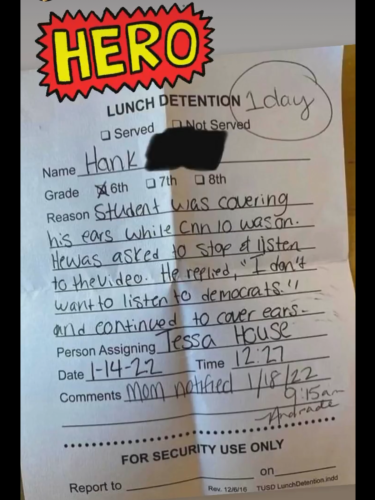 HERO
LUNCH DETENTION 1 day
Served Not Served
Name Hank
Grade 6th 7th 8th
Reason Student was covering
his ears while Cnn 10 was on.
He was asked to stop & listen
to the video. He replied, "I don't
want to listen to democrats."
and continued to cover ears.
Person Assigning Tessa House
Date 1-14-22 Time 12:27
Comments Mom notified 1/18/22
9:15am
Andrade
FOR SECURITY USE ONLY
Report to on
Rev. 12/6/16 TUSD LunchDetention.indd